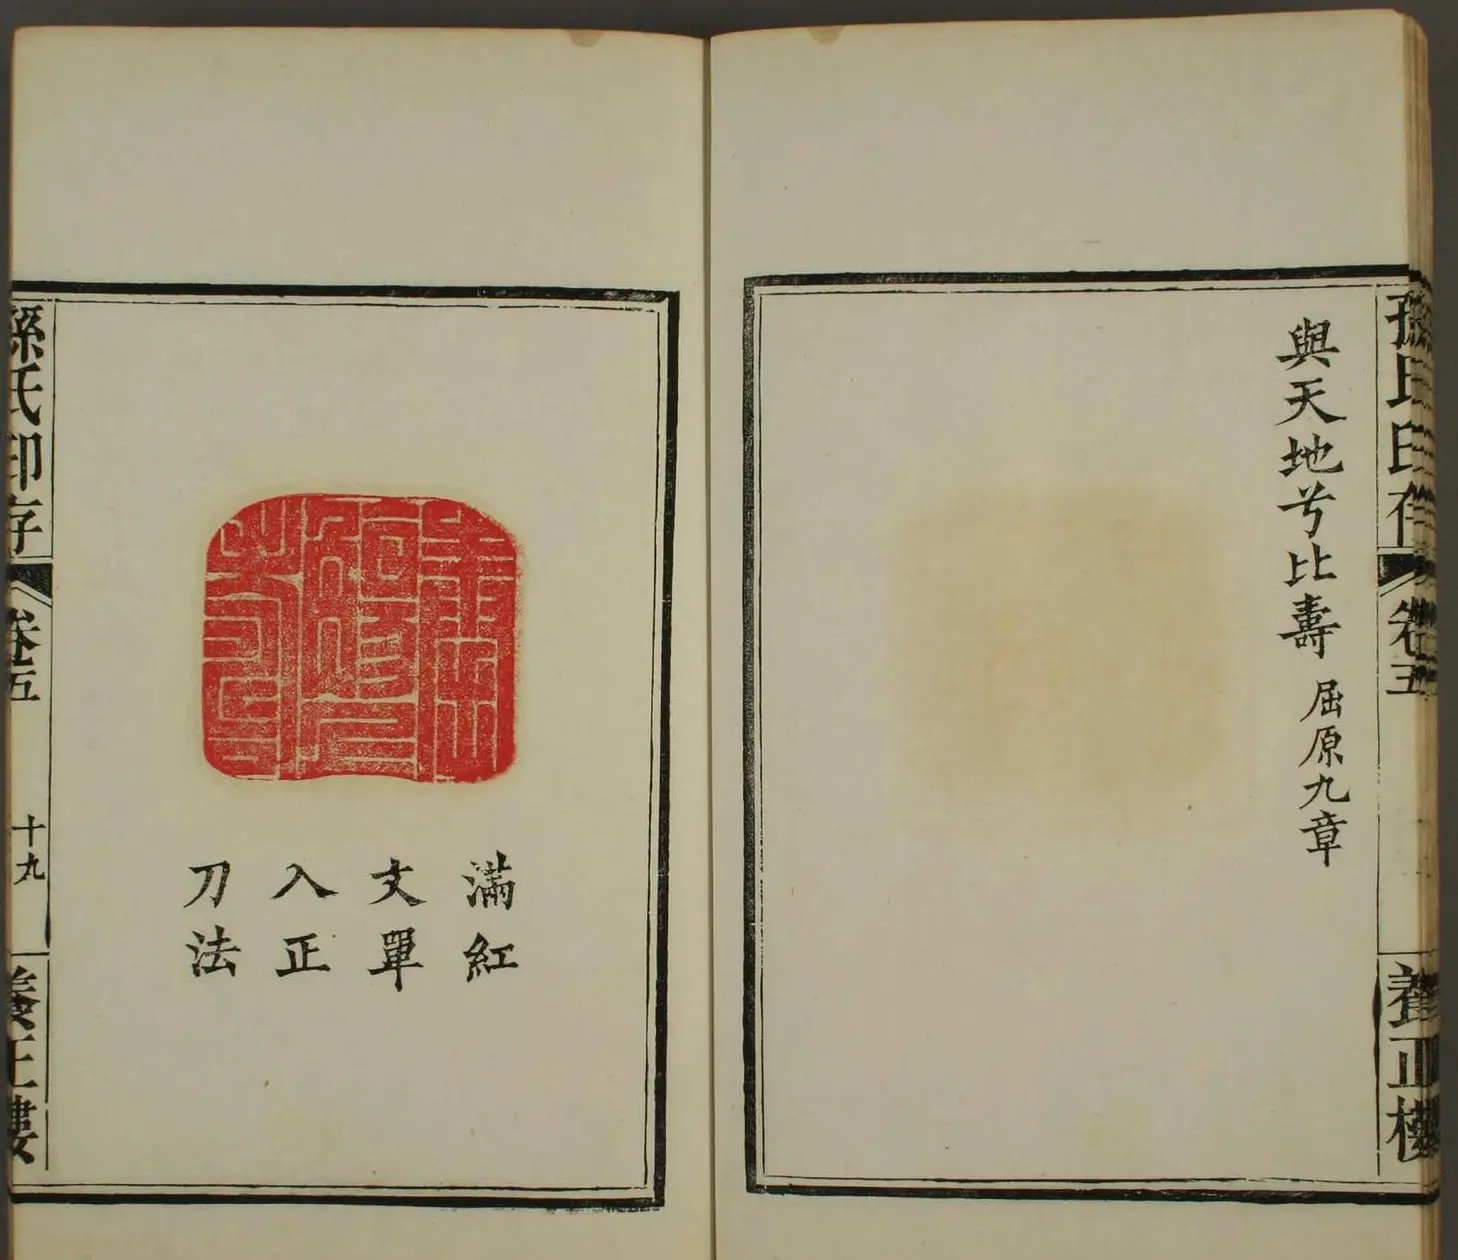 孫氏印存
卷五
養正樓
與天地兮比壽 屈原九章
滿紅
文單
入正
刀法
孫氏印存
卷五
十九
養正樓